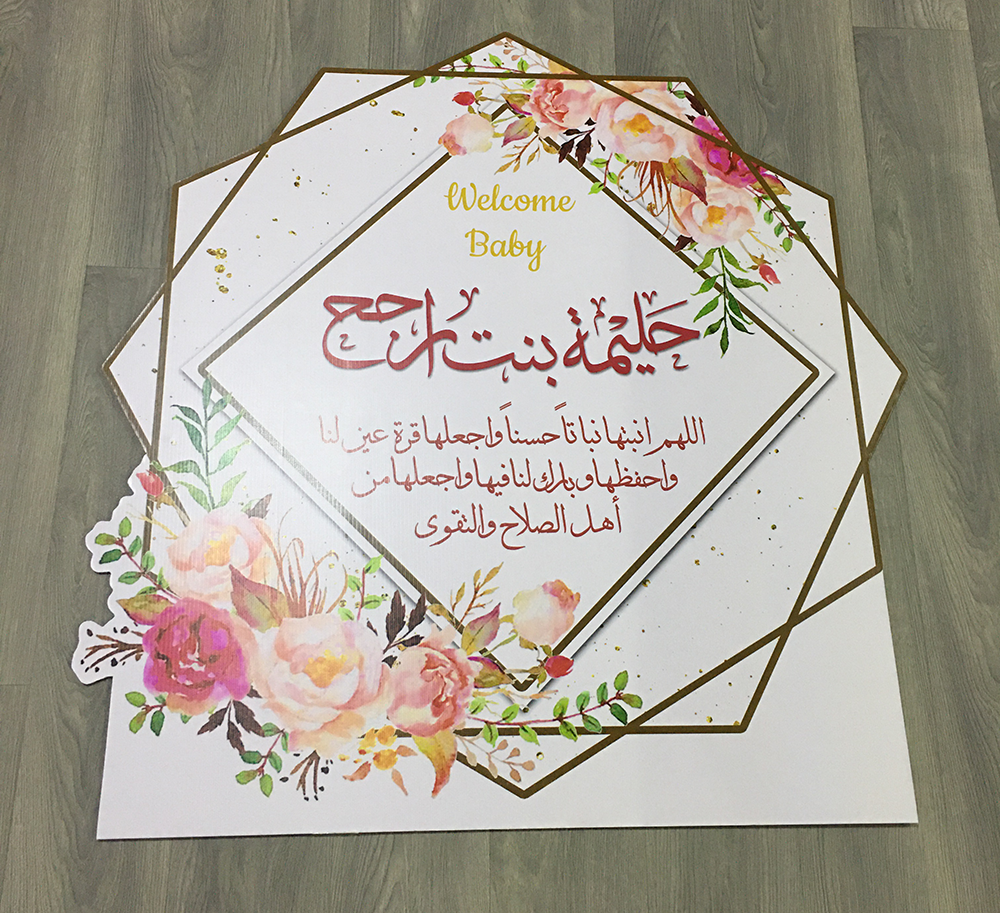 Welcome
Baby
حَليْمة بنت راجح
اللهم انبتها نباتاً حسناً واجعلها قرة عين لنا
واحفظها وبارك لنا فيها واجعلها من
أهل الصلاح والتقوى